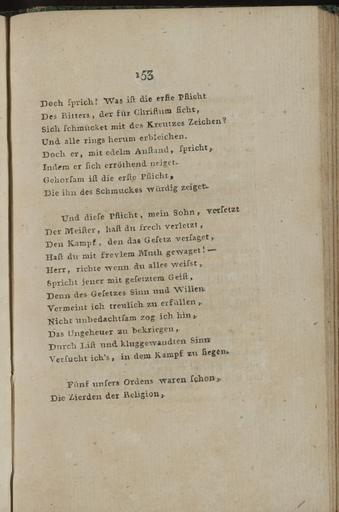 153
Doch ſprich! Was iſt die erſte Pflicht
Des Ritters, der für Chriſtum ficht,
Sich ſchmücket mit des Kreutzes Zeichen?
Und alle rings herum erbleichen.
Doch er, mit edelm Anſtand, ſpricht,
Indem er ſich erröthend neiget.
Gehorſam iſt die erſte Pflicht,
Die ihn des Schmuckes würdig zeiget.
Und dieſe Pflicht, mein Sohn, verſetzt
Der Meiſter, haſt du frech verletzt,
Den Kampf, den das Geſetz verſaget,
Haſt du mit frevlem Muth gewaget! —
Herr, richte wenn du alles weiſst,
Spricht jener mit geſetztem Geiſt,
Denn des Geſetzes Sinn und Willen
Vermeint ich treulich zu erfüllen,
Nicht unbedachtſam zog ich hin,
Das Ungeheuer zu bekriegen,
Durch Liſt und kluggewandten Sinn
Verſucht ich's, in dem Kampf zu ſiegen.
Fünf unſers Ordens waren ſchon,
Die Zierden der Religion,